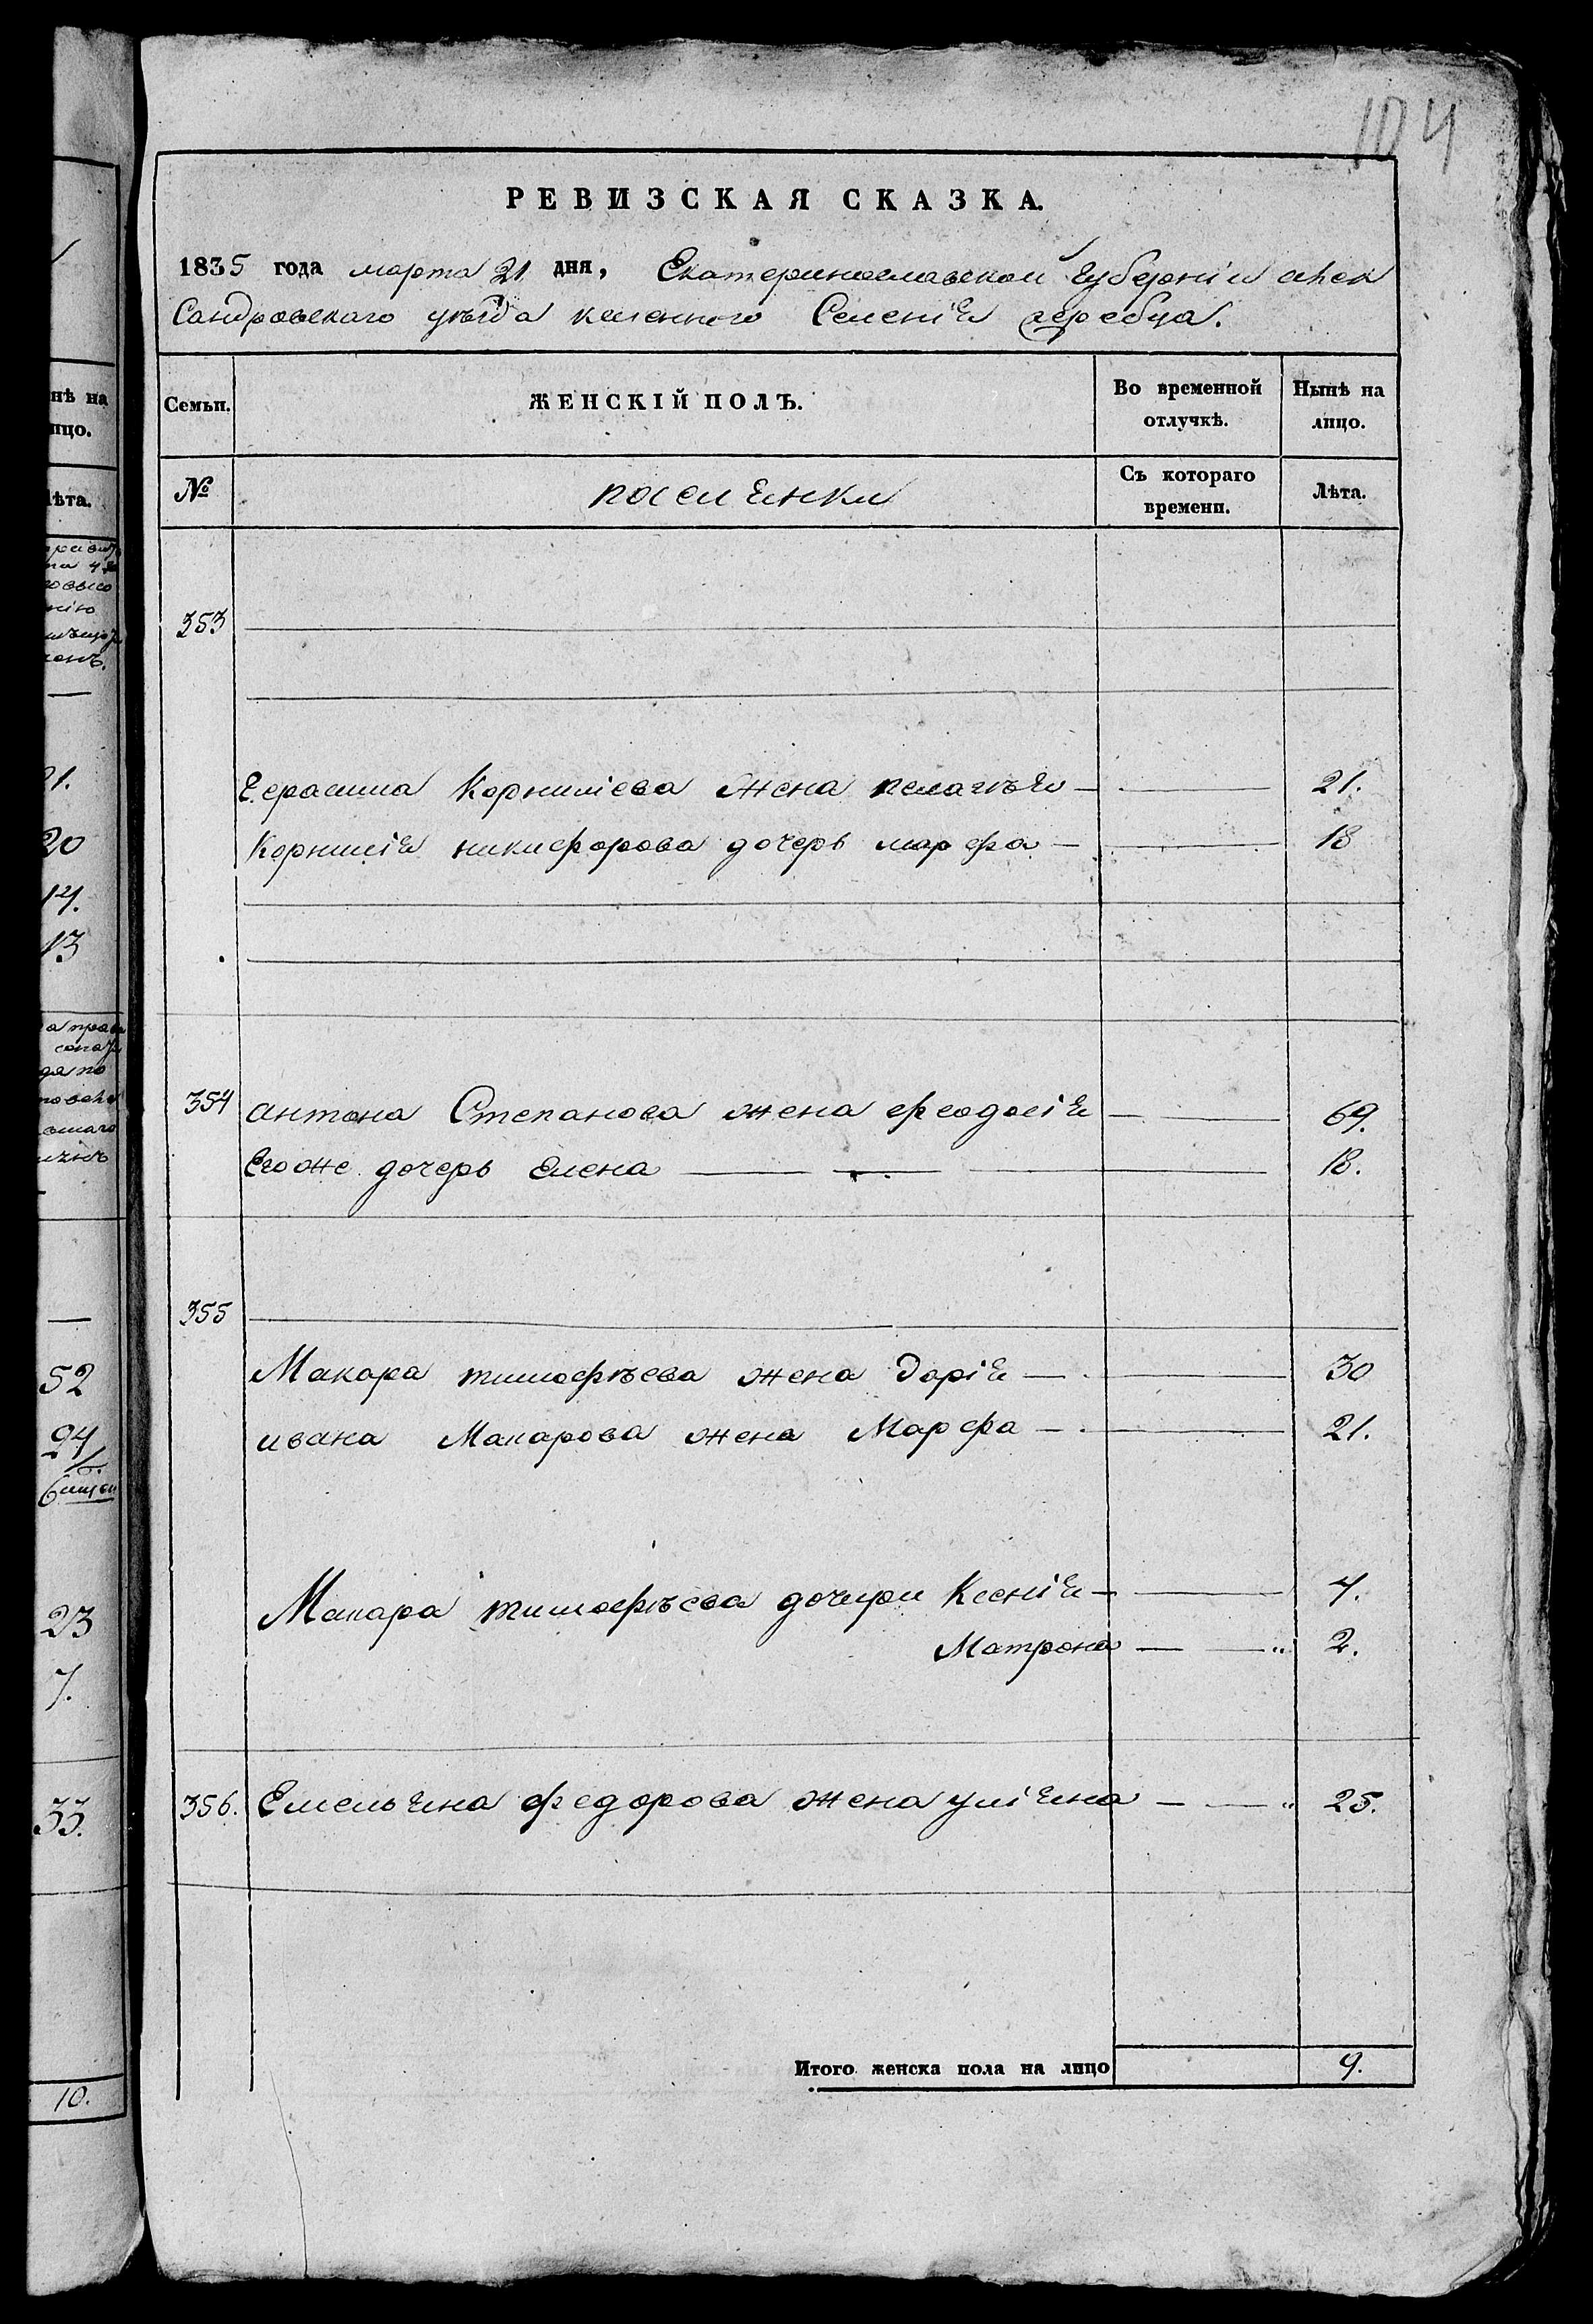 104
РЕВИЗСКАЯ СКАЗКА.
1835 года марта 21 дня, Екатеринославской губерніи алек
Сандровскаго уѣзда казенного Селенія жеребца.
Семьи. ЖЕНСКІЙ ПОЛЪ. Во временной отлучкѣ. Нынѣ на лицо.
№ поселянки Съ котораго времени. Лѣта.
353
Герасима Корнилиева жена пелагѣя 21.
Корнилія никифорова дочерь марфа 18
354 антона Степанова жена феодосія 69.
Егоже дочерь Елена 18.
355
Макара тимофѣева жена дарія 30
ивана Макарова жена Марфа 21.
Макара тимофѣева дочери Ксенія 4.
Матрона 2.
356. Емельяна федорова жена уліяна 25.
Итого женска пола на лицо 9.
нѣ на
ицо.
ѣта.
21.
20
14.
13
52
24/
23
7.
33.
10.